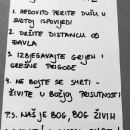 1. REDOVITO PERITE DUŠU U
SVETOJ ISPOVIJEDI
2. DRŽITE DISTANCU OD
ĐAVLA
3. IZBJEGAVAJTE GRIJEH
GREŠNE PRIGODE
4. NE BOJTE SE SMRTI -
ŽIVITE U BOŽJOJ PRISUTNOSTI
P.S. NAŠ JE BOG, BOG ŽIVIH